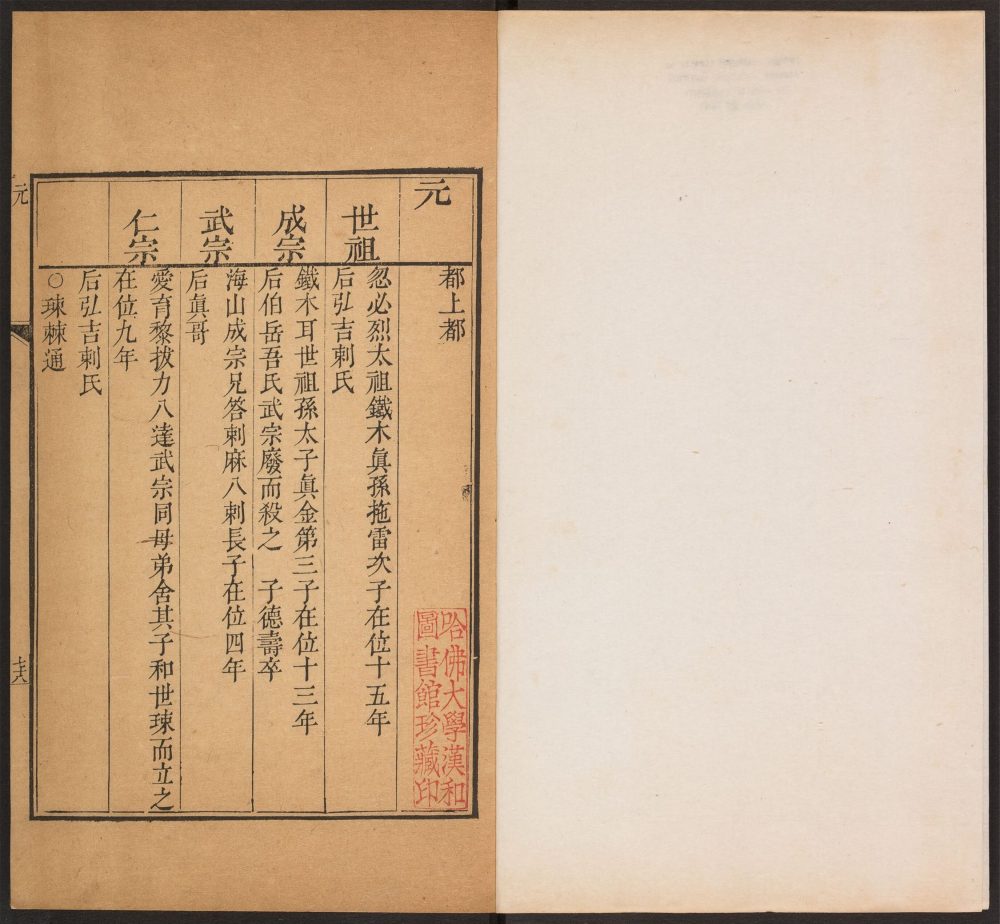 元
都上都
世祖
忽必烈太祖鐵木眞孫拖雷次子在位十五年
后弘吉剌氏
成宗
鐵木耳世祖孫太子眞金第三子在位十三年
后伯岳吾氏武宗廢而殺之　子德壽卒
武宗
海山成宗兄答剌麻八剌長子在位四年
后眞哥
仁宗
愛育黎拔力八達武宗同母弟舍其子和世㻋而立之
在位九年
后弘吉剌氏
○㻋棘通
元
哈佛大學漢和
圖書館珍藏印